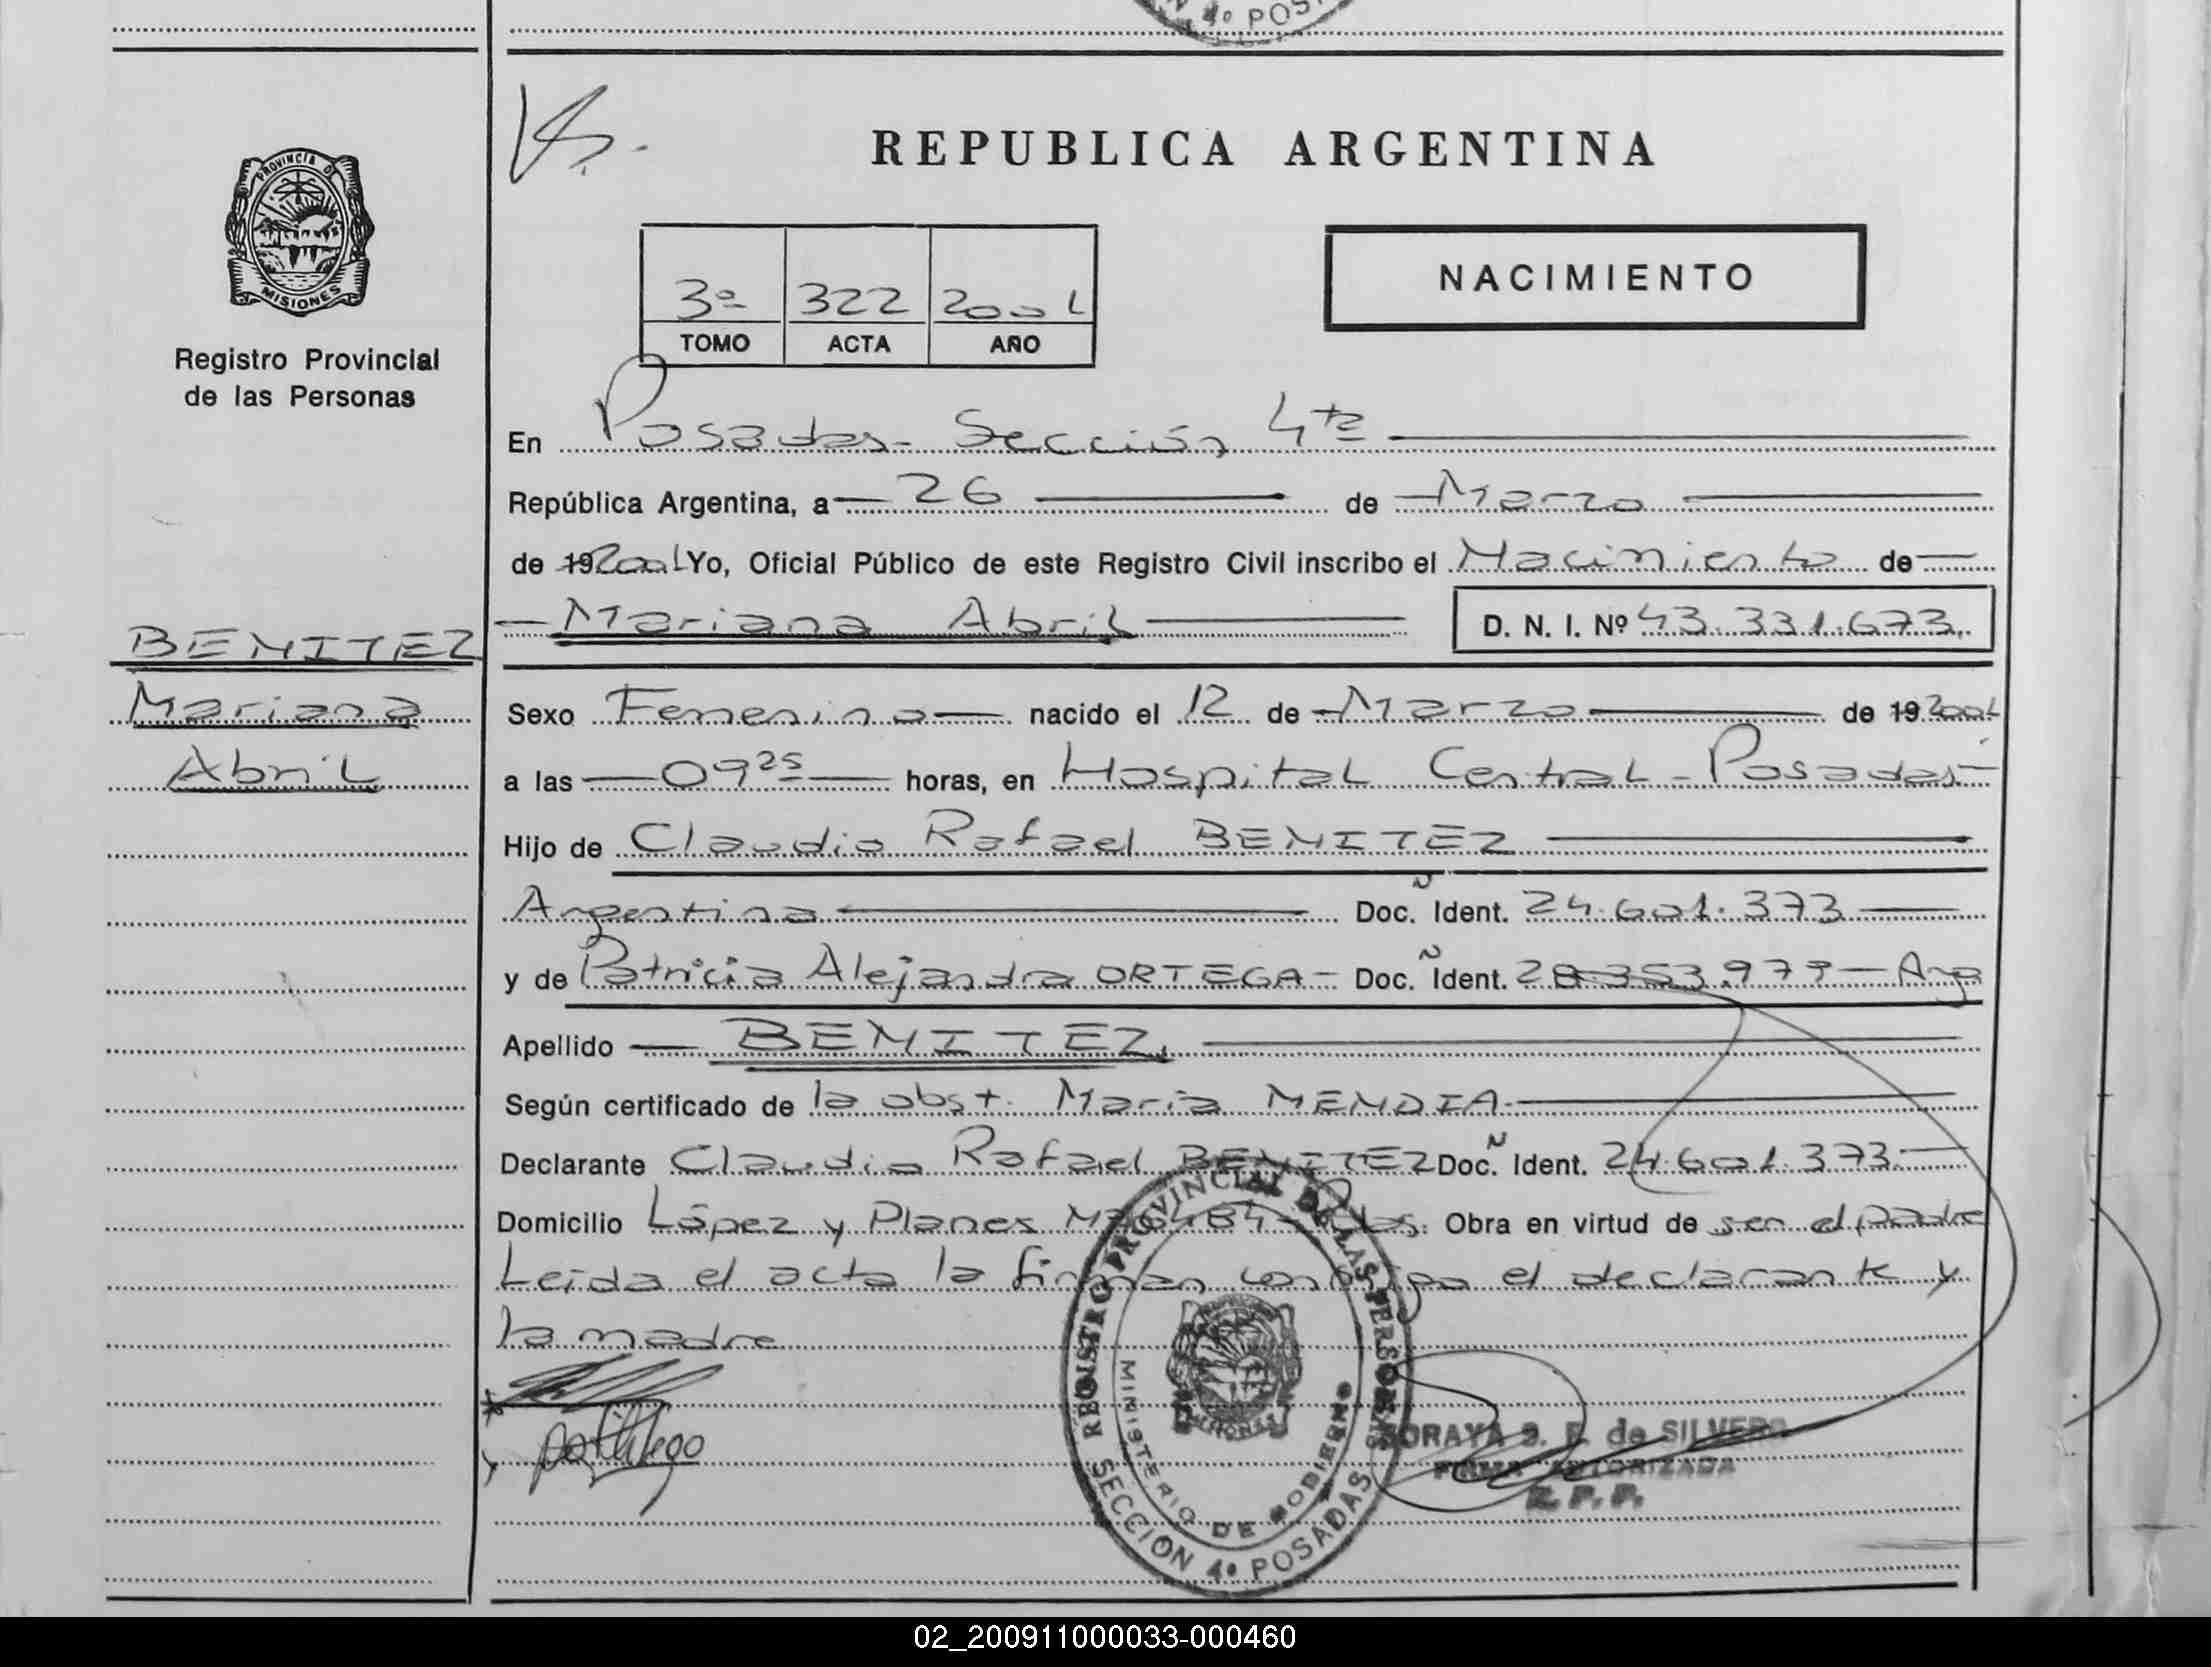 Nº 4º POS
PROVINCIA DE
MISIONES
Registro Provincial
de las Personas
BENITEZ
Mariana
Abril
REPUBLICA ARGENTINA
3º 322 2001
TOMO ACTA AÑO
NACIMIENTO
En Posadas - Sección 4ta
República Argentina, a 26 de Marzo
de 19 2001 Yo, Oficial Público de este Registro Civil inscribo el Nacimiento de
Mariana Abril D. N. I. Nº 43.331.673.
Sexo Femenino nacido el 12 de Marzo de 19 2001
a las 09 25 horas, en Hospital Central - Posadas -
Hijo de Claudio Rafael BENITEZ
Argentina Doc. Ident. 24.601.373
y de Patricia Alejandra ORTEGA - Doc. Ident. 28.353.979 - Arg
Apellido BENITEZ.
Según certificado de la obst. María MENDIA.
Declarante Claudio Rafael BENITEZ Doc. Ident. 24.601.373.
Domicilio López y Planes Nº 6484 - Pdas. Obra en virtud de ser el padre
Leida el acta la firman conmigo el declarante y
la madre
REGISTRO PROVINCIAL DE LAS PERSONAS
MINISTERIO DE GOBIERNO
MISIONES
SECCION 4º POSADAS
SORAYA S. F. de SILVERO
FIRMA AUTORIZADA
R. P. P.
02_200911000033-000460